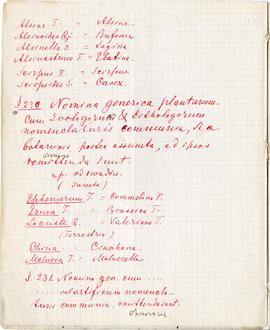 Alsine T. = Alsine.
Alsinoides Rj. = Bufonia
Alsinella D. = Sagina
Alsinastrum T. = Elatine.
Scirpus T. = Scirpus
Sciopoides S. = Carex.
§ 230. Nomina generica plantarum
cum Zoologorum & Lithologorum
nomenclaturis communia, si a
botanicis postea assumta, ad ipsos
remittenda sunt.
Ephemerum T. = Commelina P.
(Insecta)
Eruca T. = Brassica T.
Locusta R. = Valeriana T.
(Terrestris)
China = Cinchona
Molucca T. = Molucella
§ 231. Nomina gen. cum
artificum nomencla-
turis communia, omittenda sunt.